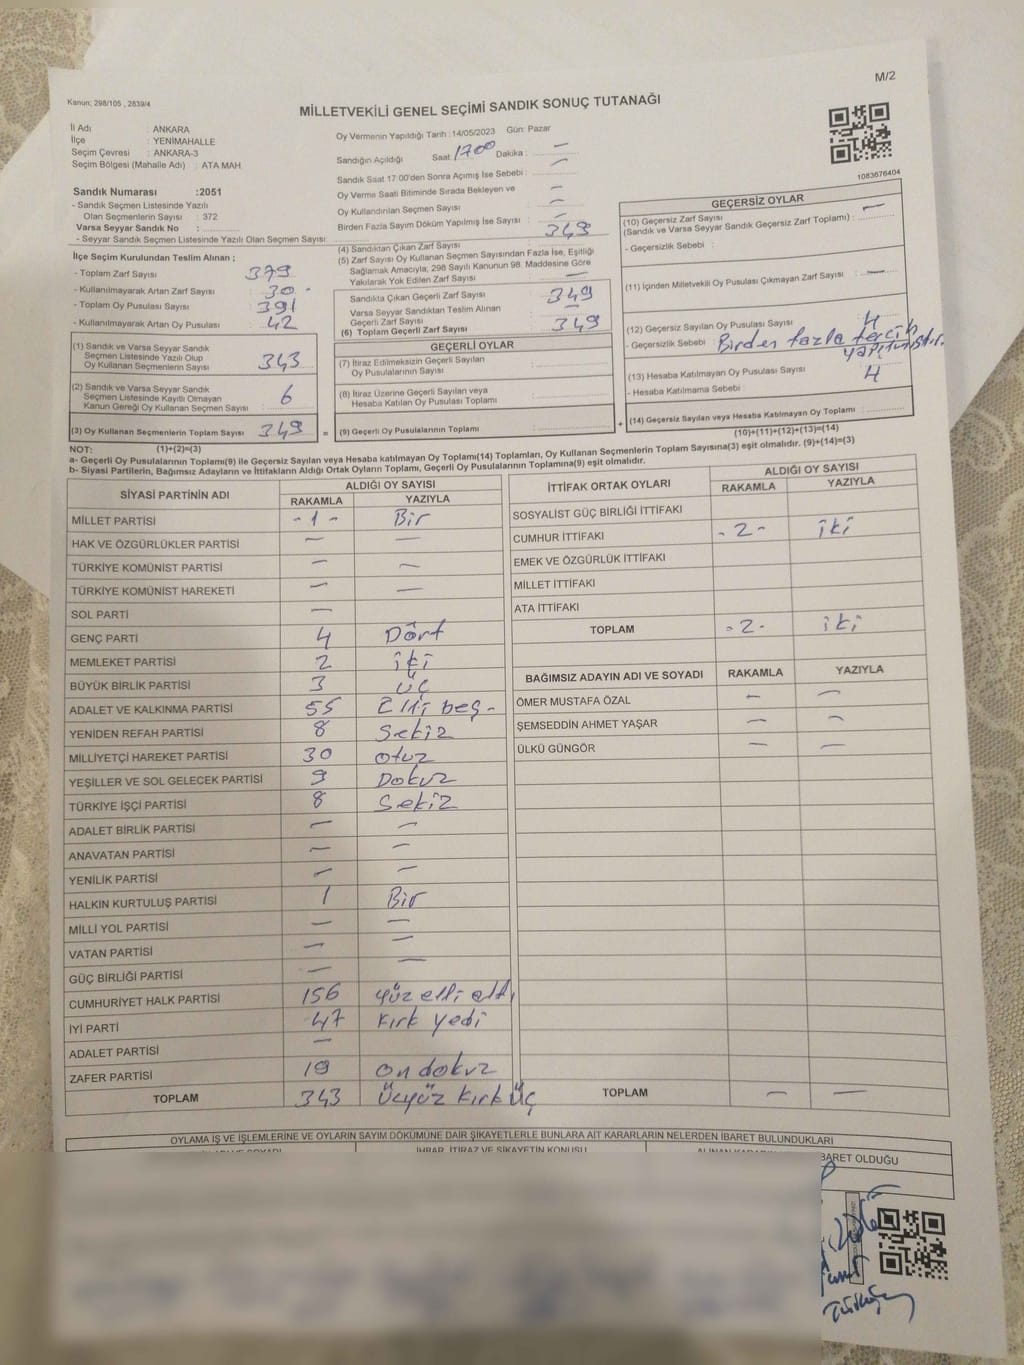 M/2
Kanun: 298/105 , 2839/4
MİLLETVEKİLİ GENEL SEÇİMİ SANDIK SONUÇ TUTANAĞI
İl Adı : ANKARA
İlçe : YENİMAHALLE
Seçim Çevresi : ANKARA-3
Seçim Bölgesi (Mahalle Adı) : ATA MAH.
Sandık Numarası :2051
- Sandık Seçmen Listesinde Yazılı
Olan Seçmenlerin Sayısı : 372
Varsa Seyyar Sandık No :
- Seyyar Sandık Seçmen Listesinde Yazılı Olan Seçmen Sayısı:
Oy Vermenin Yapıldığı Tarih :14/05/2023 Gün: Pazar
Sandığın Açıldığı Saat: 1700 Dakika : —
Sandık Saat 17:00'den Sonra Açımış İse Sebebi : —
Oy Verme Saati Bitiminde Sırada Bekleyen ve
Oy Kullandırılan Seçmen Sayısı : —
Birden Fazla Sayım Döküm Yapılmış İse Sayısı : —
1083676404
İlçe Seçim Kurulundan Teslim Alınan ;
- Toplam Zarf Sayısı : 379
- Kullanılmayarak Artan Zarf Sayısı : 30 -
- Toplam Oy Pusulası Sayısı : 391
- Kullanılmayarak Artan Oy Pusulası : 42
(1) Sandık ve Varsa Seyyar Sandık
Seçmen Listesinde Yazılı Olup
Oy Kullanan Seçmenlerin Sayısı : 343
(2) Sandık ve Varsa Seyyar Sandık
Seçmen Listesinde Kayıtlı Olmayan
Kanun Gereği Oy Kullanan Seçmen Sayısı : 6
(3) Oy Kullanan Seçmenlerin Toplam Sayısı : 349
(4) Sandıktan Çıkan Zarf Sayısı : 349
(5) Zarf Sayısı Oy Kullanan Seçmen Sayısından Fazla İse, Eşitliği
Sağlamak Amacıyla, 298 Sayılı Kanunun 98. Maddesine Göre
Yakılarak Yok Edilen Zarf Sayısı : —
Sandıkta Çıkan Geçerli Zarf Sayısı : 349
Varsa Seyyar Sandıktan Teslim Alınan
Geçerli Zarf Sayısı : —
(6) Toplam Geçerli Zarf Sayısı : 349
GEÇERLİ OYLAR
(7) İtiraz Edilmeksizin Geçerli Sayılan
Oy Pusulalarının Sayısı :
(8) İtiraz Üzerine Geçerli Sayılan veya
Hesaba Katılan Oy Pusulası Toplamı :
= (9) Geçerli Oy Pusulalarının Toplamı :
GEÇERSİZ OYLAR
(10) Geçersiz Zarf Sayısı
(Sandık ve Varsa Seyyar Sandık Geçersiz Zarf Toplamı) : —
- Geçersizlik Sebebi :
(11) İçinden Milletvekili Oy Pusulası Çıkmayan Zarf Sayısı : —
(12) Geçersiz Sayılan Oy Pusulası Sayısı : 4
- Geçersizlik Sebebi : Birden fazla tercih
yapılmıştır.
(13) Hesaba Katılmayan Oy Pusulası Sayısı : 4
- Hesaba Katılmama Sebebi :
+ (14) Geçersiz Sayılan veya Hesaba Katılmayan Oy Toplamı :
NOT: (1)+(2)=(3)
(10)+(11)+(12)+(13)=(14)
a- Geçerli Oy Pusulalarının Toplamı(9) ile Geçersiz Sayılan veya Hesaba Katılmayan Oy Toplamı(14) Toplamları, Oy Kullanan Seçmenlerin Toplam Sayısına(3) eşit olmalıdır. (9)+(14)=(3)
b- Siyasi Partilerin, Bağımsız Adayların ve İttifakların Aldığı Ortak Oyların Toplamı, Geçerli Oy Pusulalarının Toplamına(9) eşit olmalıdır.
SİYASİ PARTİNİN ADI ALDIĞI OY SAYISI
RAKAMLA YAZIYLA
MİLLET PARTİSİ -1- Bir
HAK VE ÖZGÜRLÜKLER PARTİSİ — —
TÜRKİYE KOMÜNİST PARTİSİ — —
TÜRKİYE KOMÜNİST HAREKETİ — —
SOL PARTİ —
GENÇ PARTİ 4 Dört
MEMLEKET PARTİSİ 2 iki
BÜYÜK BİRLİK PARTİSİ 3 üç
ADALET VE KALKINMA PARTİSİ 55 Elli beş-
YENİDEN REFAH PARTİSİ 8 Sekiz
MİLLİYETÇİ HAREKET PARTİSİ 30 otuz
YEŞİLLER VE SOL GELECEK PARTİSİ 9 Dokuz
TÜRKİYE İŞÇİ PARTİSİ 8 Sekiz
ADALET BİRLİK PARTİSİ — —
ANAVATAN PARTİSİ — —
YENİLİK PARTİSİ — —
HALKIN KURTULUŞ PARTİSİ 1 Bir
MİLLİ YOL PARTİSİ — —
VATAN PARTİSİ — —
GÜÇ BİRLİĞİ PARTİSİ — —
CUMHURİYET HALK PARTİSİ 156 yüz elli altı
İYİ PARTİ 47 kırk yedi
ADALET PARTİSİ —
ZAFER PARTİSİ 19 on dokuz
TOPLAM 343 Üçyüz kırk üç
İTTİFAK ORTAK OYLARI ALDIĞI OY SAYISI
RAKAMLA YAZIYLA
SOSYALİST GÜÇ BİRLİĞİ İTTİFAKI
CUMHUR İTTİFAKI -2- iki
EMEK VE ÖZGÜRLÜK İTTİFAKI
MİLLET İTTİFAKI
ATA İTTİFAKI
TOPLAM -2- iki
BAĞIMSIZ ADAYIN ADI VE SOYADI RAKAMLA YAZIYLA
ÖMER MUSTAFA ÖZAL — —
ŞEMSEDDİN AHMET YAŞAR — —
ÜLKÜ GÜNGÖR — —
TOPLAM — —
OYLAMA İŞ VE İŞLEMLERİNE VE OYLARIN SAYIM DÖKÜMÜNE DAİR ŞİKAYETLERLE BUNLARA AİT KARARLARIN NELERDEN İBARET BULUNDUKLARI
İHBAR, İTİRAZ VE ŞİKAYETİN KONUSU
BARET OLDUĞU